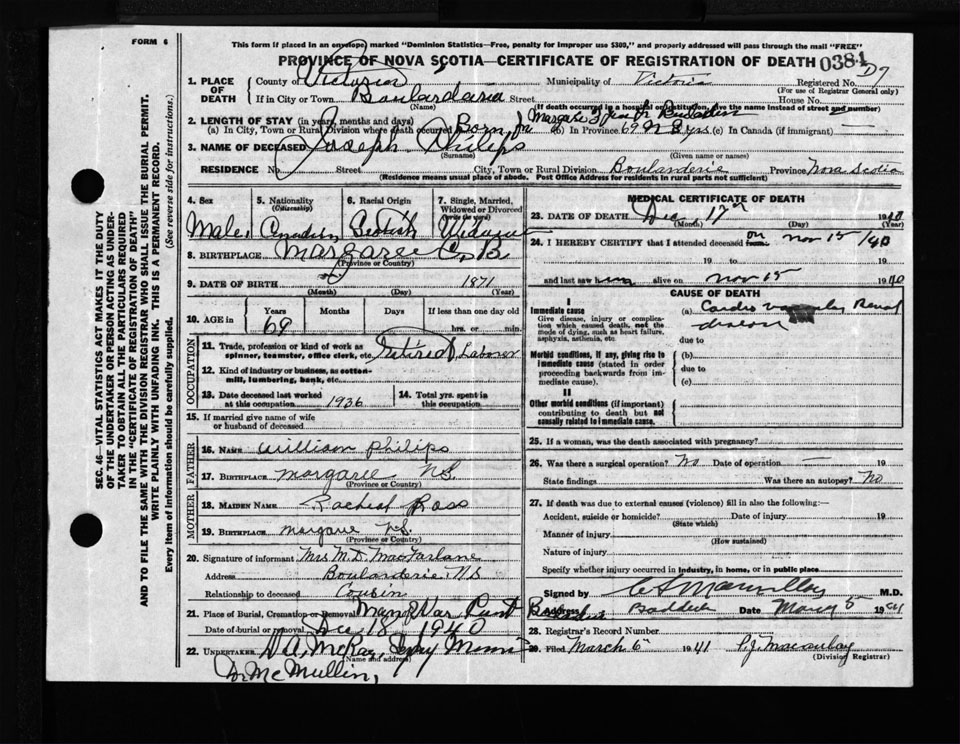 FORM 6
This form if placed in an envelope marked "Dominion Statistics—Free, penalty for improper use $300," and properly addressed will pass through the mail "FREE"
PROVINCE OF NOVA SCOTIA—CERTIFICATE OF REGISTRATION OF DEATH 0384 D7
1. PLACE OF DEATH
County of Victoria Municipality of Victoria Registered No.
(For use of Registrar General only)
If in City or Town Boulardaria Street House No.
(Name) (If death occurred in a hospital or institution, give the name instead of street and number)
2. LENGTH OF STAY (in years, months and days)
(a) In City, Town or Rural Division where death occurred Born in (b) In Province 69 yrs. (c) In Canada (if immigrant) —
3. NAME OF DECEASED Joseph Philips
(Surname) (Given name or names)
RESIDENCE No. Street City, Town or Rural Division Boulanderie Province Nova Scotia
(Residence means usual place of abode. Post Office Address for residents in rural parts not sufficient)
4. Sex Male
5. Nationality (Citizenship)
6. Racial Origin Scotish
7. Single, Married, Widowed or Divorced (write the word)
8. BIRTHPLACE Margaree C B
(Province or Country)
9. DATE OF BIRTH 1871
(Month) (Day) (Year)
10. AGE in Years 69 Months Days If less than one day old
hrs. or min.
OCCUPATION
11. Trade, profession or kind of work as spinner, teamster, office clerk, etc. Retired Laborer
12. Kind of industry or business, as cotton-mill, lumbering, bank, etc.
13. Date deceased last worked at this occupation 1936
14. Total yrs. spent in this occupation
15. If married give name of wife or husband of deceased
FATHER
16. NAME William Philips
17. BIRTHPLACE Margaree N.S.
(Province or Country)
MOTHER
18. MAIDEN NAME Racheal Ross
19. BIRTHPLACE Margaree N.S.
(Province or Country)
20. Signature of informant Mrs M.D. MacFarlane
Address Boulanderie N.S
Relationship to deceased Cousin
21. Place of Burial, Cremation or Removal Man O War Point
Date of burial or removal Dec 18 1940
22. UNDERTAKER D A McKay
(Name and address)
McMullin,
MEDICAL CERTIFICATE OF DEATH
23. DATE OF DEATH Dec 17 1940
(Month) (Day) (Year)
24. I HEREBY CERTIFY that I attended deceased from on Nov 15 /40
19 to 19
and last saw him alive on Nov 15 1940
CAUSE OF DEATH
I
Immediate cause
Give disease, injury or complication which caused death, not the mode of dying, such as heart failure, asphyxia, asthenia, etc.
(a) Cardio Renal
due to
Morbid conditions, if any, giving rise to immediate cause (stated in order proceeding backwards from immediate cause).
(b)
due to
(c)
II
Other morbid conditions (if important) contributing to death but not causally related to immediate cause.
25. If a woman, was the death associated with pregnancy?
26. Was there a surgical operation? No Date of operation — 19
State findings Was there an autopsy? No
27. If death was due to external causes (violence) fill in also the following:—
Accident, suicide or homicide? Date of injury 19
(State which)
Manner of injury
(How sustained)
Nature of injury
Specify whether injury occurred in industry, in home, or in public place
Signed by C L MacMillan M.D.
Address Baddeck Date 5 1941
28. Registrar's Record Number
29. Filed March 6 1941 P.J. Macaulay
(Division Registrar)
SEC. 46—VITAL STATISTICS ACT MAKES IT THE DUTY
OF THE UNDERTAKER OR PERSON ACTING AS UNDER-
TAKER TO OBTAIN ALL THE PARTICULARS REQUIRED
IN THE "CERTIFICATE OF REGISTRATION OF DEATH"
AND TO FILE THE SAME WITH THE DIVISION REGISTRAR WHO SHALL ISSUE THE BURIAL PERMIT.
WRITE PLAINLY WITH UNFADING INK. THIS IS A PERMANENT RECORD.
Every item of information should be carefully supplied. (See reverse side for instructions.)